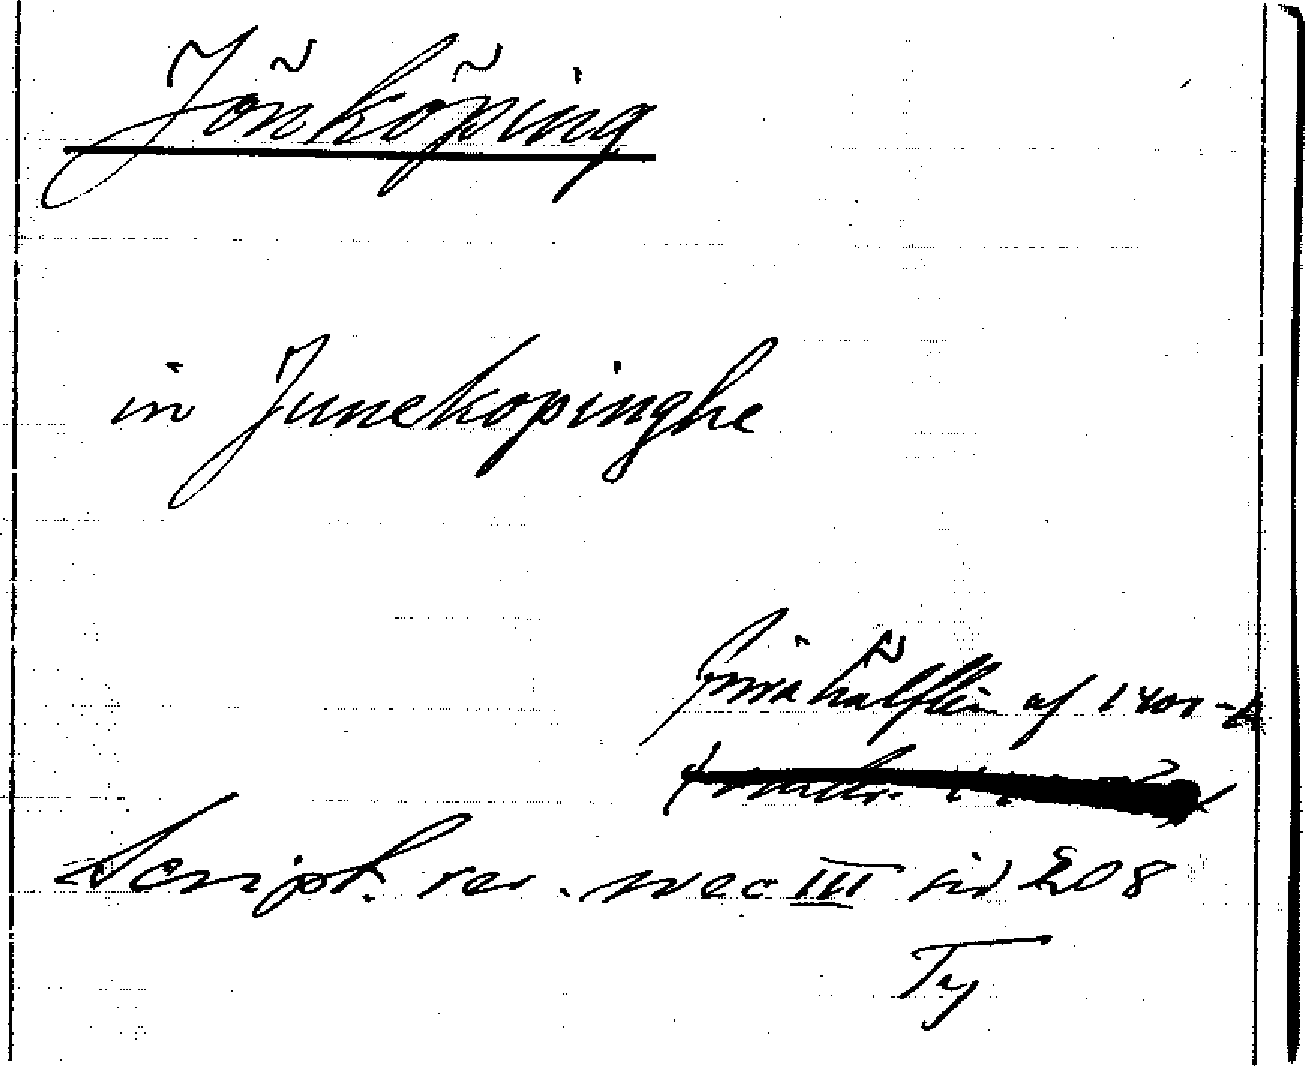 Jönköping
in Junekopinghe
förra hälften af 1400-t
Script. rer. svec III sid 208
Ty